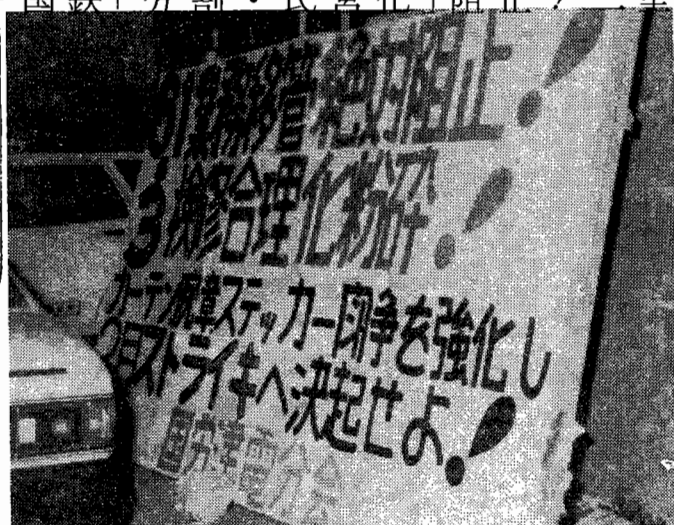 国鉄「分割・民営化」阻止！
3.1業務移管絶対阻止!
3検修合理化粉砕!
カーテン腕章ステッカー闘争を強化し
2月ストライキへ決起せよ!
電分会